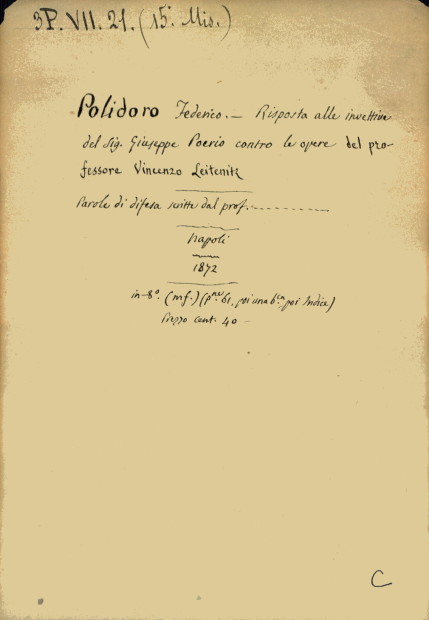 3P. VII. 21. (15.ª Mis.)
Polidoro Federico. — Risposta alle invettive
del Sig. Giuseppe Poerio contro le opere del pro-
fessore Vincenzo Leitenitz
Parole di difesa scritte dal prof. - - - - - - - - -
Napoli
1872
in-8º. (mf.) (p.ne 61, poi una b.ca poi Indice)
Prezzo cent. 40 —
C